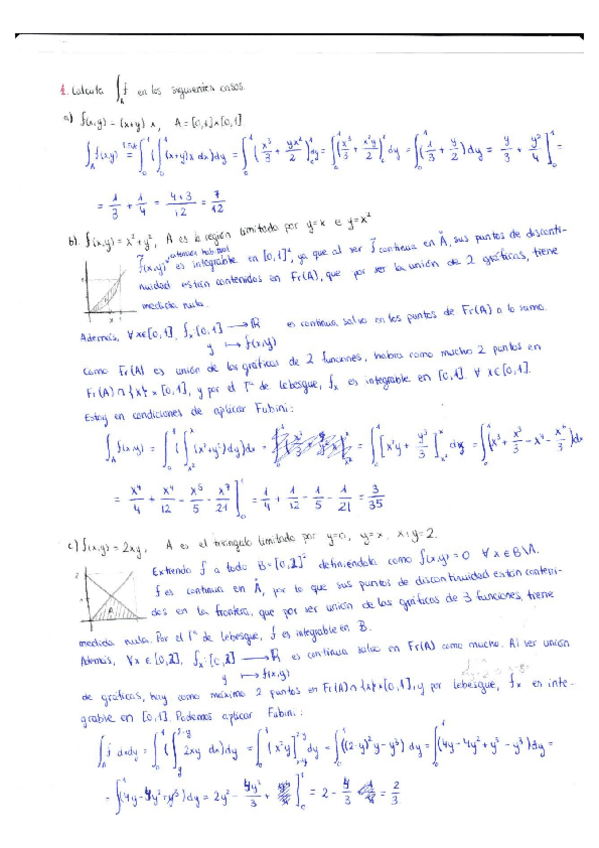 1. Calcula ∫_A f en los siguientes casos.
a) f(x,y) = (x+y) x, A = [0,1]x[0,1]
∫_A f(x,y) = ∫_0^1 (∫_0^1 (x+y)x dx)dy = ∫_0^1 (x³/3 + yx²/2)_0^1 dy = ∫_0^1 (x³/3 + x²y/2)_0^1 dy = ∫_0^1 (1/3 + y/2) dy = y/3 + y²/4 ]_0^1 =
= 1/3 + 1/4 = 4+3/12 = 7/12
b) f(x,y) = x²+y², A es la región limitada por y=x e y=x²
f(x,y) es integrable en [0,1]², ya que al ser f continua en Å, sus puntos de disconti-
nuidad están contenidos en Fr(A), que por ser la unión de 2 gráficas, tiene
medida nula.
Además, ∀ x∈[0,1], f_x: [0,1] → ℝ es continua salvo en los puntos de Fr(A) a lo sumo.
y ↦ f(x,y)
Como Fr(A) es unión de las gráficas de 2 funciones, habrá como mucho 2 puntos en
Fr(A) ∩ {x} x [0,1], y por el T^a de Lebesgue, f_x es integrable en [0,1]. ∀ x∈[0,1].
Estoy en condiciones de aplicar Fubini:
∫_A f(x,y) = ∫_0^1 (∫_{x²}^x (x²+y²)dy)dx = = ∫_0^1 [x²y + y³/3]_{x²}^x dx = ∫_0^1 (x³ + x³/3 - x⁴ - x⁶/3)dx
= x⁴/4 + x⁴/12 - x⁵/5 - x⁷/21 ]_0^1 = 1/4 + 1/12 - 1/5 - 1/21 = 3/35
c) f(x,y) = 2xy, A es el triángulo limitado por y=0, y=x, x+y=2.
Extiendo f a todo B=[0,2]² definiéndola como f(x,y)=0 ∀ x∈B\A.
f es continua en Å, por lo que sus puntos de discontinuidad están conteni-
dos en la frontera, que por ser unión de las gráficas de 3 funciones, tiene
medida nula. Por el T^a de Lebesgue, f es integrable en B.
Además, ∀x ∈ [0,2], f_x: [0,2] → ℝ es continua salvo en Fr(A) como mucho. Al ser unión
y ↦ f(x,y)
de gráficas, hay como máximo 2 puntos en Fr(A) ∩ {x} x [0,1], y por Lebesgue, f_x es inte-
grable en [0,1]. Podemos aplicar Fubini:
∫_A f dxdy = ∫_0^1 (∫_y^{2-y} 2xy dx)dy = ∫_0^1 [x²y]_{x=y}^{2-y} dy = ∫_0^1 ((2-y)²y - y³) dy = ∫_0^1 (4y - 4y² + y³ - y³) dy =
= ∫_0^1 (4y - 4y² + y³)dy = 2y² - 4y³/3 + ]_0^1 = 2 - 4/3 = 2/3.